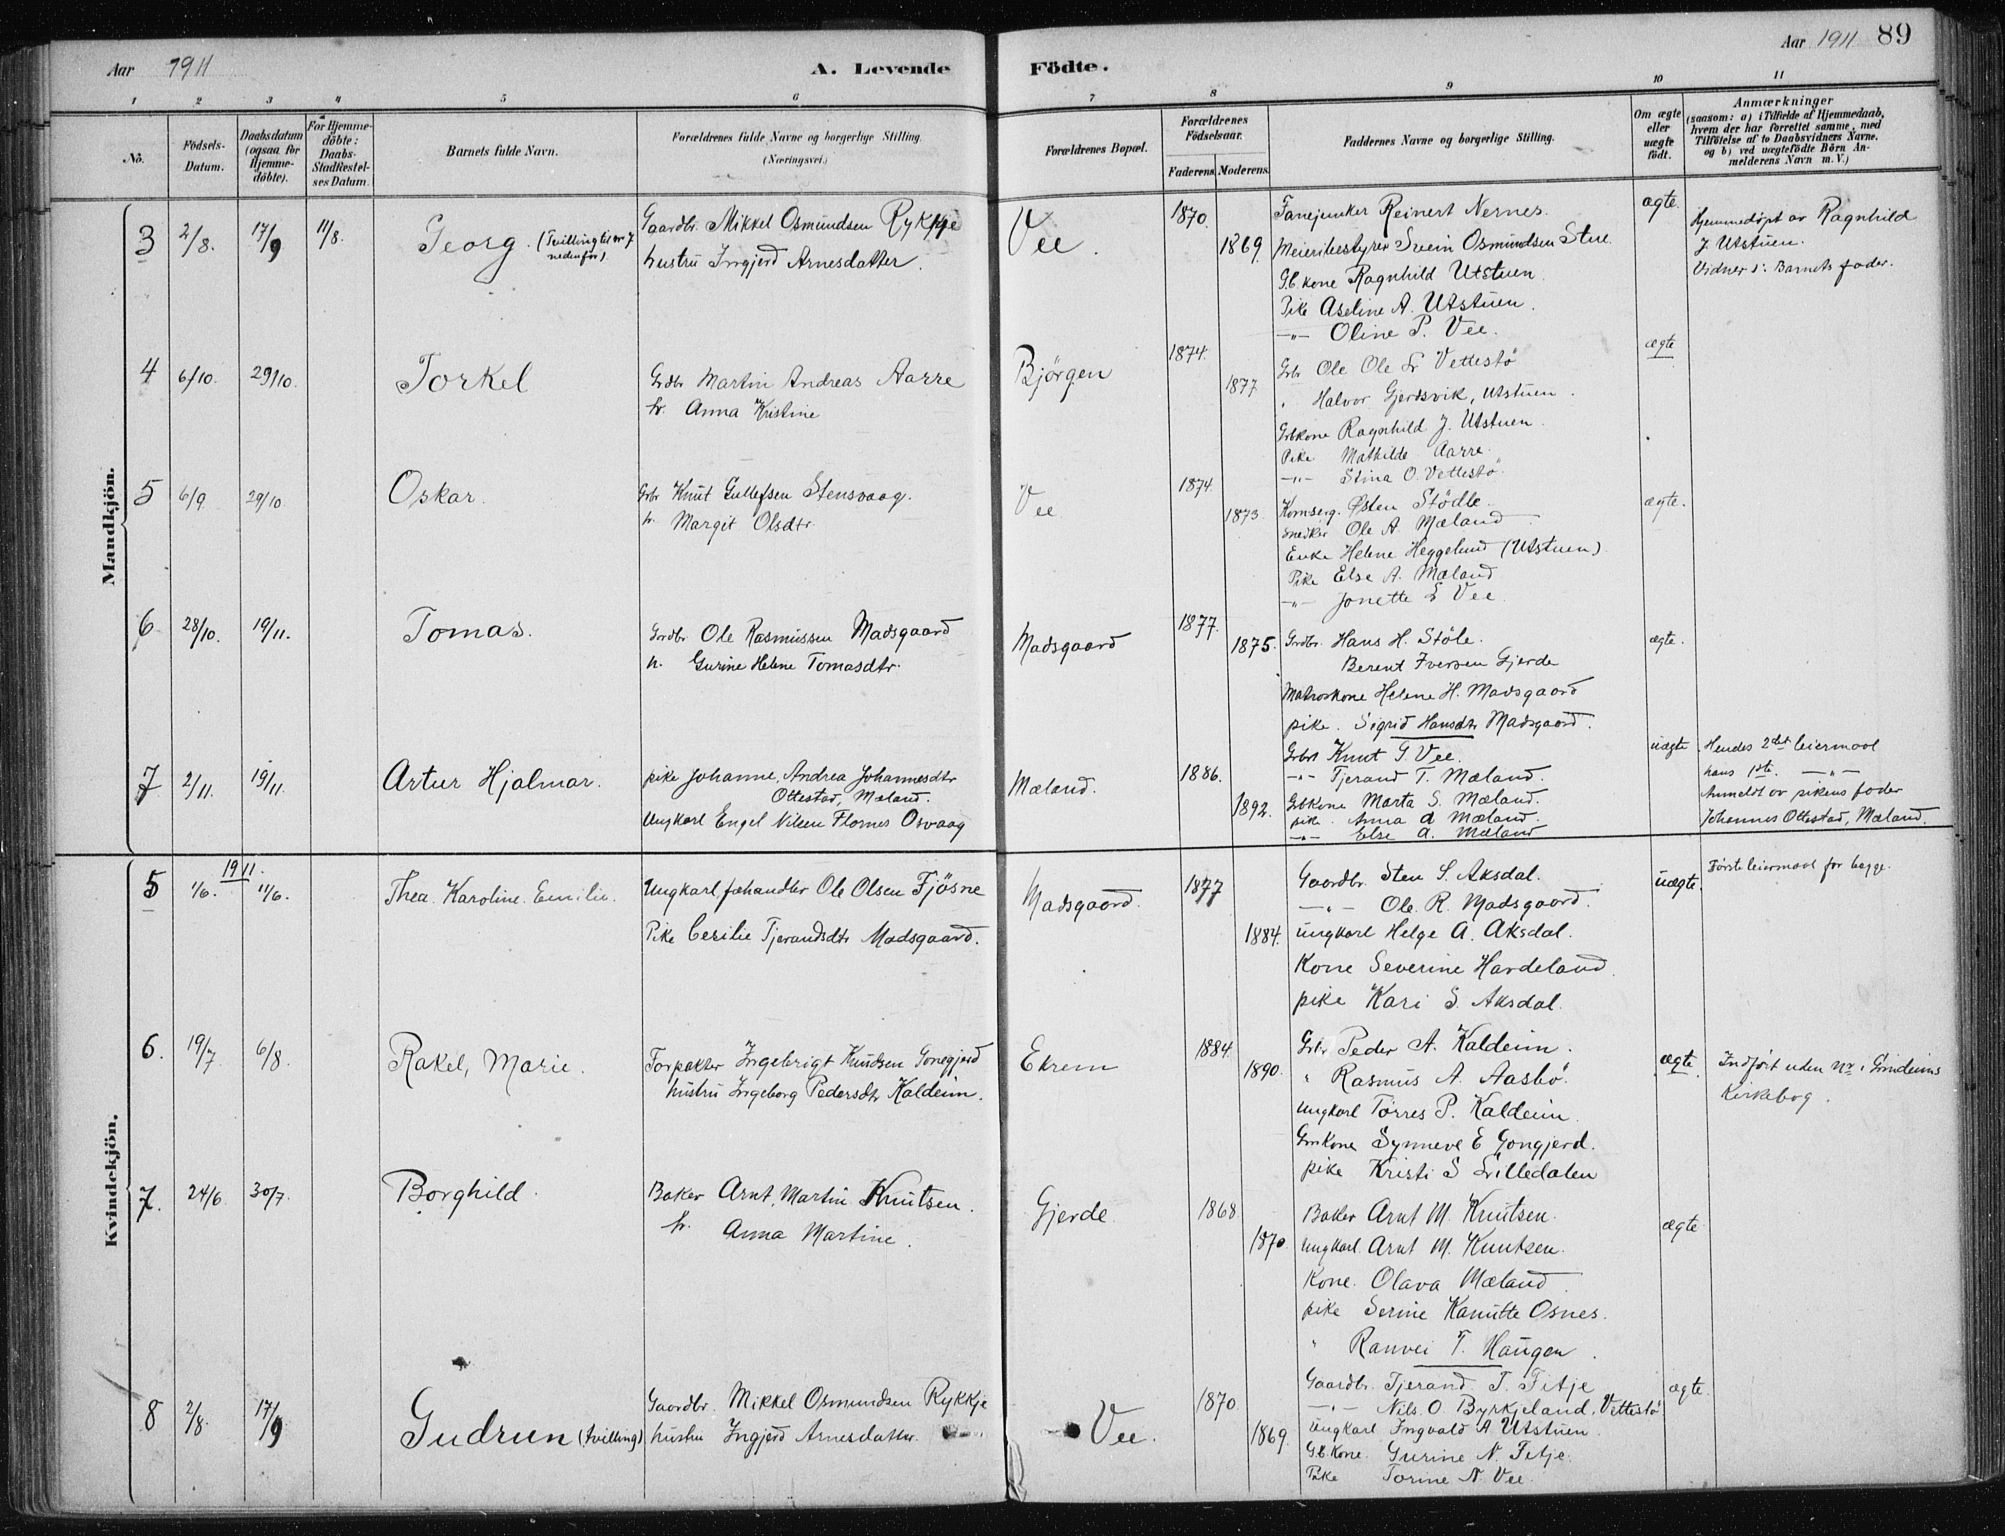 Aar 1911
A. Levende Födte.
Aar 1911 89
1 2 3 4 5 6 7 8 9 10 11
No.
Födsels-Datum.
Daabsdatum (ogsaa for Hjemme-döbte).
For Hjemme-döbte: Daabs-Stadfæstel-ses Datum.
Barnets fulde Navn.
Forældrenes fulde Navne og borgerlige Stilling. (Næringsvei.)
Forældrenes Bopæl.
Forældrenes Födselsaar.
Faderens. Moderens.
Faddernes Navne og borgerlige Stilling.
Om ægte eller uægte födt.
Anmærkninger (saasom: a) i Tilfælde af Hjemmedaab, hvem der har forrettet samme, med Tilföielse af to Daabsvidners Navne, og b) ved uægtefödte Börn An-melderens Navn m. V.)
Mandkjön.
3 2/8. 17/9 11/8. Georg. (Tvilling til nr 7 nedenfor)
Gaardbr. Mikkel Osmundsen Rykkje
hustru Ingjerd Arnesdatter.
Vee.
1870. 1869.
Fanejunker Reinert Nernes.
Meieribestyrer Svein Osmundsen Stue.
G.b.kone Ragnhild Utstuen.
Pike Aseline A. Utstuen.
-"- Oline P. Vee.
ægte
Hjemmedøpt av Ragnhild
J Utstuen.
Vidner: Barnets fader.
4 6/10. 29/10. Torkel
Grdbr Martin Andreas Aarre
h. Anna Kristine
Bjørgen
1874. 1877
Grbr Ole Ole Sr Vettestø
" Halvor Gjerdsvik, Utstuen.
Grbkone Ragnhild J. Utstuen.
Pike Mathilde Aarre.
-"- Stina O. Vettestø
ægte
5 6/9 29/10 Oskar.
Grbr Knut Gullefsen Stensvaag.
h. Margit Olsdtr.
Vee
1874. 1873.
Kornserg. Østen Stødle.
Snedker Ole A Mæland
Enke Helene Heggelund (Utstuen).
Pike Else A. Mæland
-"- Jonette S Vee.
ægte.
6 28/10. 19/11. Tomas.
Grdbr Ole Rasmussen Madsgaard
h. Gurine Helene Tomasdtr.
Madsgaard
1877. 1875.
Grdbr. Hans H. Støle.
Berent Iversen Gjerde
Matroskone Helene H. Madsgaard
pike. Sigrid Hansdtr Madsgaard.
ægte.
7 2/11. 19/11. Artur Hjalmar.
pike Johanne, Andrea Johannesdtr
Ottestad, Mæland.
Ungkarl Engel Nilsen Flornes Osvaag
Mæland.
1886. 1892.
Grbr Knut G. Vee.
-"- Tjerand T. Mæland.
Grbkone Marta S. Mæland.
pike. Anna A Mæland.
-"- Else A. Mæland
uægte
Hendes 2det leiermaal
hans 1ste. -"-
Anmeldt av pikens fader
Johannes Ottestad, Mæland.
Kvindekjön.
1911.
5 1/6. 11/6. Thea. Karoline. Emilie.
Ungkarl, fæhandler Ole Olsen Fjøsne
Pike Cecilie Tjerandsdtr Madsgaard.
Madsgaard.
1877 1884.
Gaardbr. Sten S. Aksdal.
-"- Ole. R. Madsgaard.
ungkarl Helge A. Aksdal.
Kone Severine Hardeland.
pike Kari S. Aksdal.
uægte.
Første leiermaal for begge.
6. 19/7 6/8. Rakel, Marie.
Forpakter Ingebrigt Knudsen Gonegjerd
hustru Ingeborg Pedersdtr Kaldeim.
Ekrem
1884. 1890.
Grbr Peder A. Kaldeim.
" Rasmus A. Aasbø.
Ungkarl Tørres P. Kaldeim.
Grbkone Synneve E Gongjerd.
pike Kristi S Lilledalen
ægte
Indført uden Nr i Grindeims
Kirkebog.
7. 24/6 30/7. Borghild.
Baker Arnt, Martin Knutsen.
h. Anna Martine.
Gjerde
1868. 1870.
Baker Arnt M. Knutsen.
Ungkarl. Arnt M. Knutsen.
Kone. Olava Mæland
pike Serine Kanutte Osnes.
" Ranvei T. Haugen.
ægte
8 2/8. 17/9 Gudrun (tvilling)
Gaardbr. Mikkel Osmundsen Rykkje
hustru Ingjerd Arnesdatter.
Vee.
1870. 1869.
Gaardbr. Tjerand T. Fitje
-"- Nils. O. Byrkjeland, Vettestø
Ungkarl Ingvald A Utstuen.
G.b.Kone. Gurine N. Fitje.
Pike Torine N. Vee.
ægte.